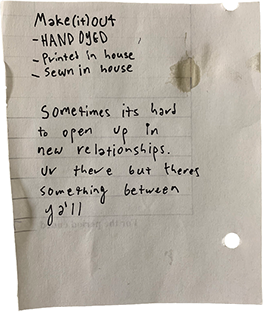 Make(it)OUt
- HAND DYED
- Printed in house
- Sewn in house
Sometimes its hard
to open up in
new relationships.
Ur there but theres
something between
ya'll